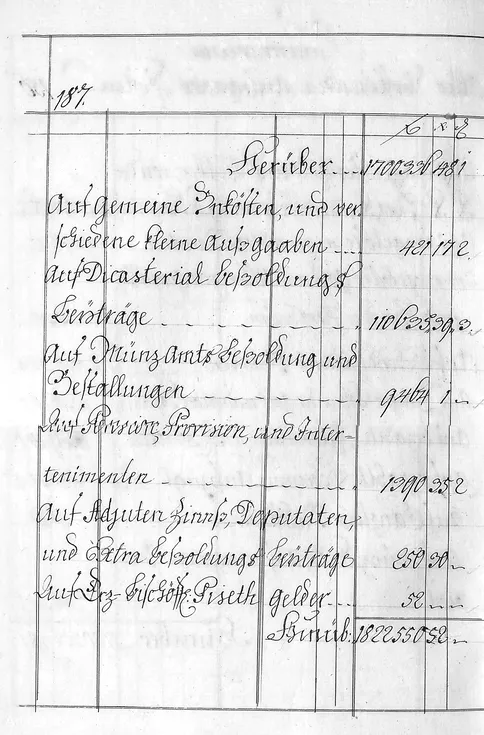 187.
f x ₰
Herüber.... 1700336 48 1
Auf Gemeine Unkösten, und ver
schiedene kleine Außgaaben.... 421 17 2.
Auf Dicasterial besoldungs
Beÿträge 110635 39 3
Auf Münz Amts Besoldung und
Bestallungen 9464 1 -
Auf Provision, und Inter-
tenimenten 1390 35 2
Auf Adjuten Zinnß, Deputaten,
und Extra besoldungs beÿträge 250 30 -
Auf Erz-bischöffl: Piseth gelder... 52 - -
Hinüb: 1822550 52 -